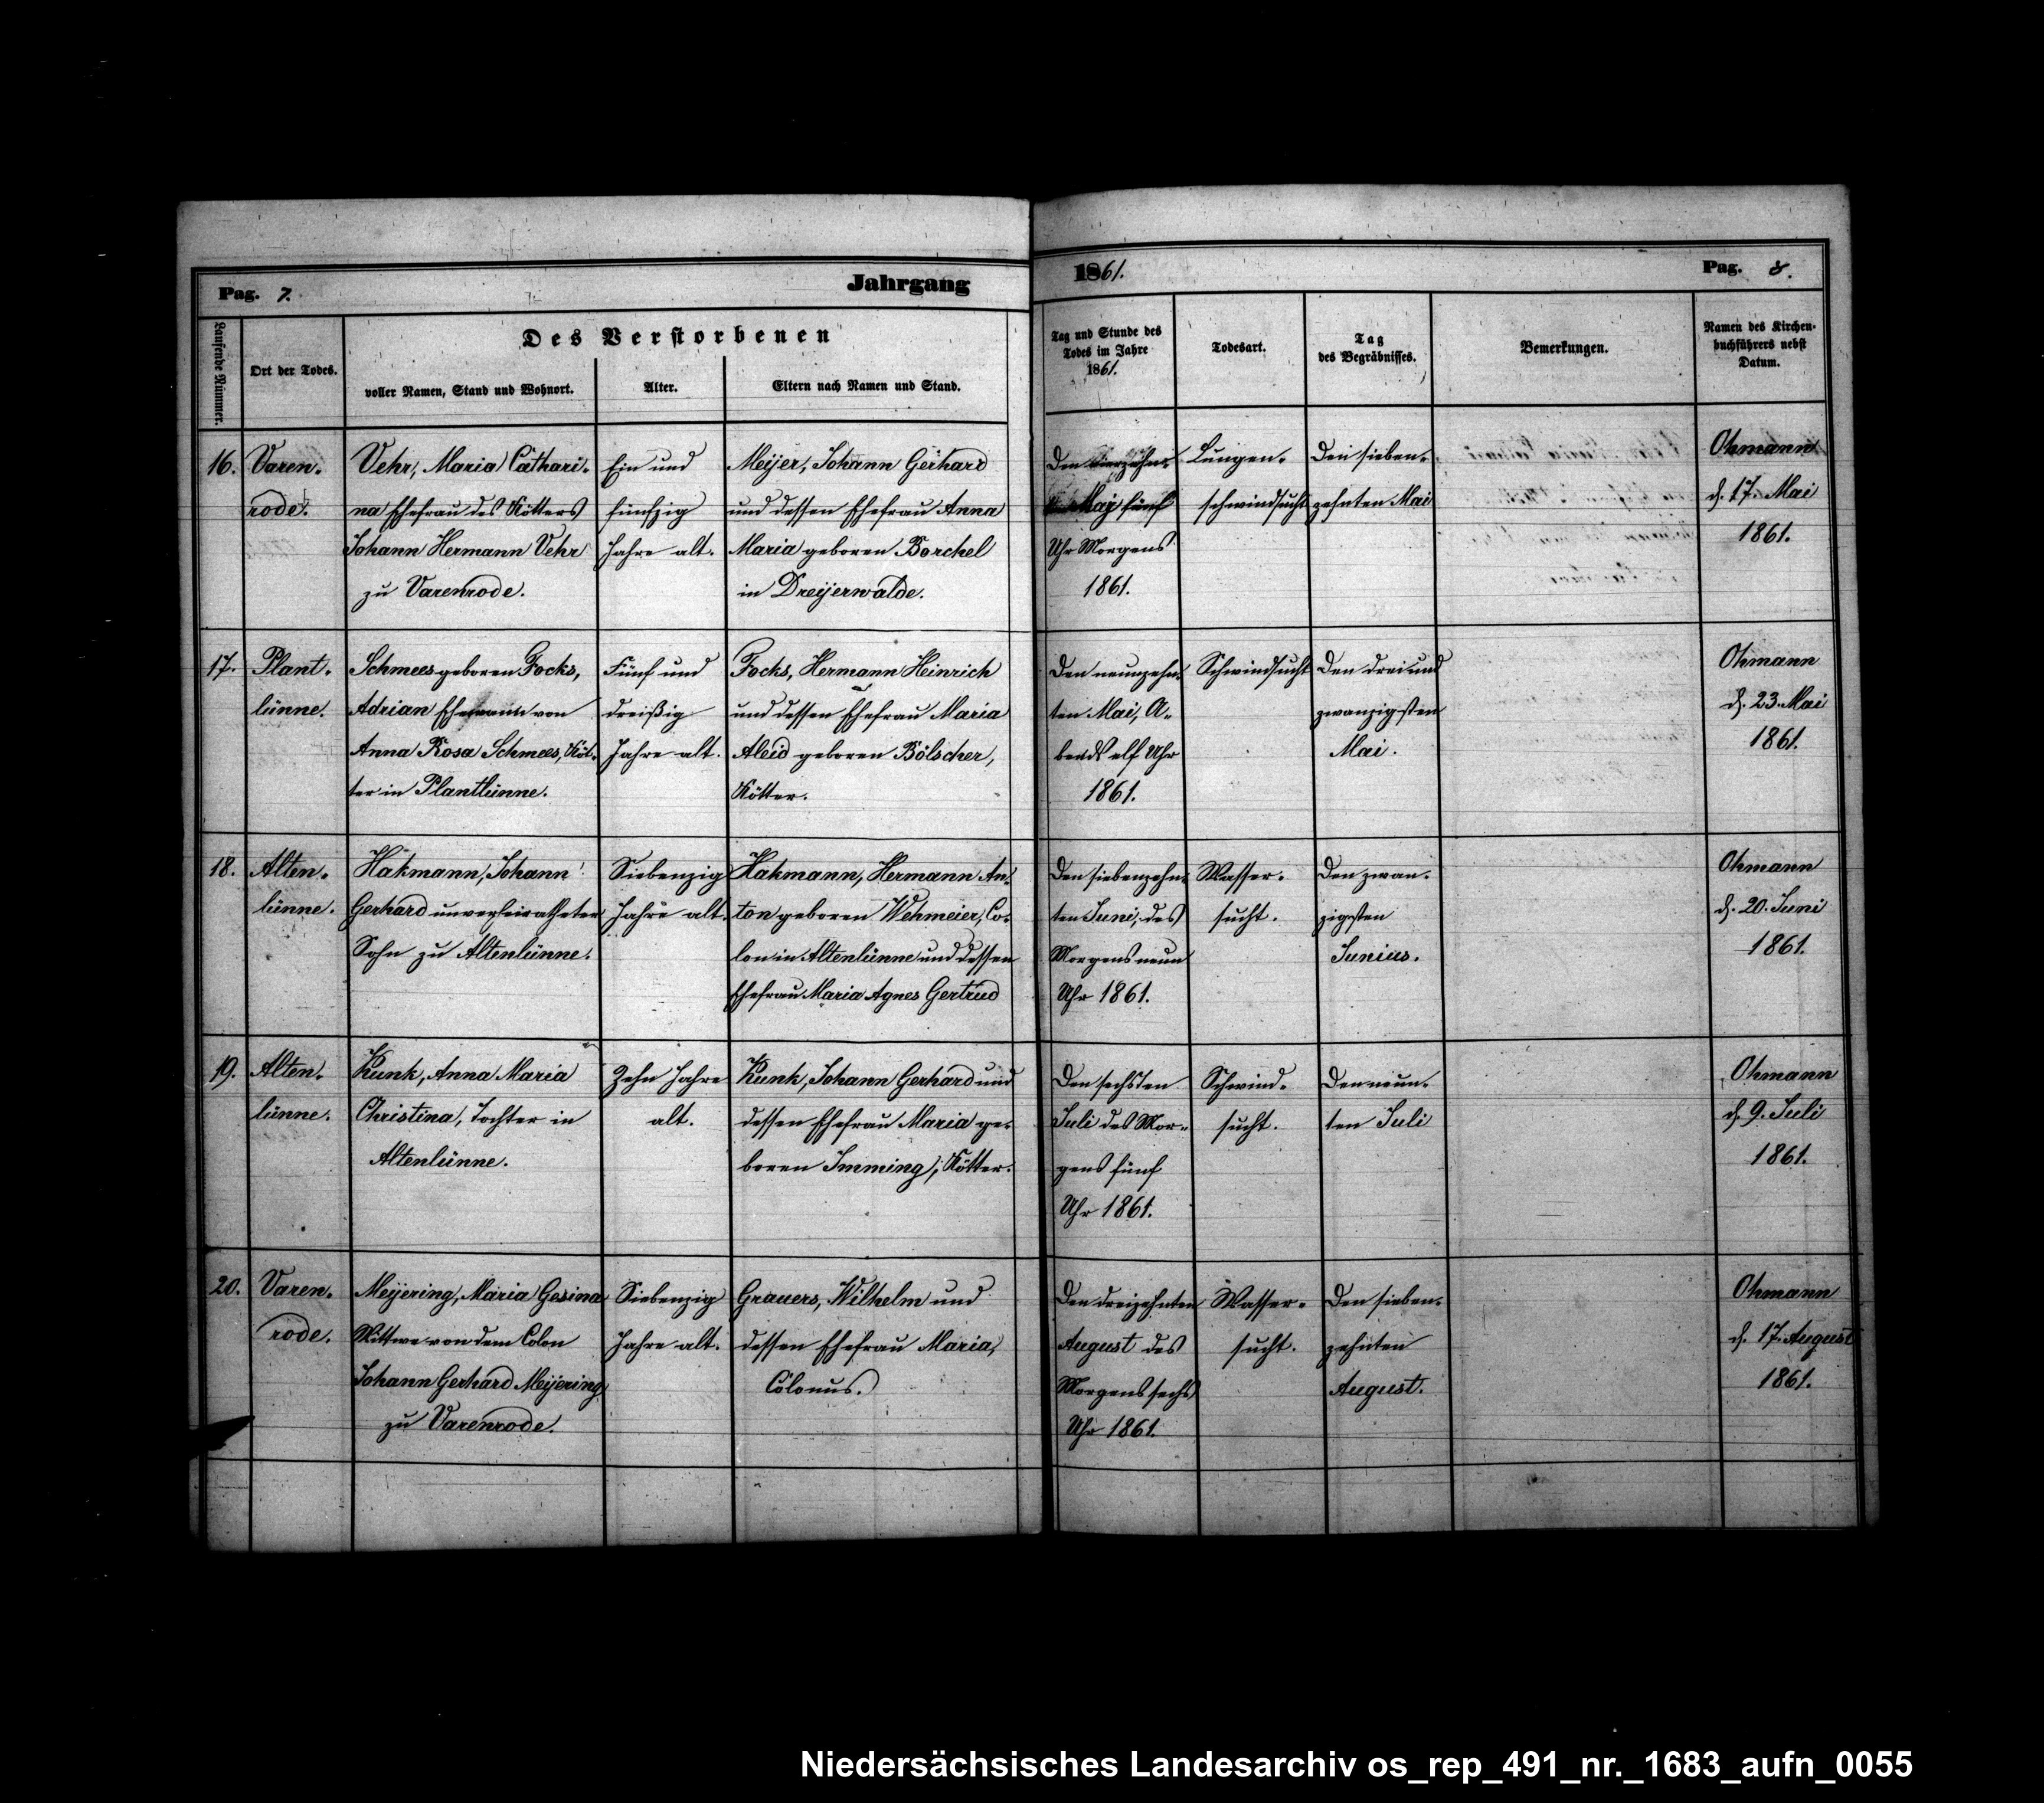 Pag. 7.
Jahrgang
1861.
Pag. 8.
Laufende Nummer.
Ort der Todes.
Des Verstorbenen
voller Namen, Stand und Wohnort.
Alter.
Eltern nach Namen und Stand.
Tag und Stunde des
Todes im Jahre
1861.
Todesart.
Tag
des Begräbnisses.
Bemerkungen.
Namen des Kirchen-
buchführers nebst
Datum.
16.
Varen-
rode.
Vehr, Maria Cathari-
na Ehefrau des Kötters
Johann Hermann Vehr
zu Varenrode.
Ein und
fünfzig
Jahre alt.
Meijer, Johann Gerhard
und dessen Ehefrau Anna
Maria geboren Borchel
in Dreijerwalde.
Den vierzehn-
May fünf
Uhr Morgens
1861.
Lungen-
schwindsucht
Den sieben-
zehnten Mai
Ohmann
d. 17. Mai
1861.
17.
Plant-
lünne.
Schmees geboren Focks,
Adrian Ehemann von
Anna Rosa Schmees, Köt-
ter in Plantlünne.
Fünf und
dreißig
Jahre alt.
Focks, Hermann Heinrich
und dessen Ehefrau Maria
Aleid geboren Bölscher,
Kötter.
Den neunzehn-
ten Mai, A-
bends elf Uhr
1861.
Schwindsucht
Den drei und
zwanzigsten
Mai.
Ohmann
d. 23. Mai
1861.
18.
Alten-
lünne.
Hakmann, Johann
Gerhard unverheiratheter
Sohn zu Altenlünne.
Siebenzig
Jahre alt.
Hakmann, Hermann An-
ton geboren Wehmeier, Co-
lon in Altenlünne und dessen
Ehefrau Maria Agnes Gertrud
Den siebenzehn-
ten Juni, des
Morgens neun
Uhr 1861.
Wasser-
sucht.
Den zwan-
zigsten
Junius.
Ohmann
d. 20. Juni
1861.
19.
Alten-
lünne.
Kunk, Anna Maria
Christina, Tochter in
Altenlünne.
Zehn Jahre
alt.
Kunk, Johann Gerhard und
dessen Ehefrau Maria ge-
boren Imming, Kötter.
Den sechsten
Juli des Mor-
gens fünf
Uhr 1861.
Schwind-
sucht.
Den neun-
ten Juli
Ohmann
d. 9. Juli
1861.
20.
Varen-
rode.
Meijering, Maria Gesina
Wittwe von dem Colon
Johann Gerhard Meijering
zu Varenrode.
Siebenzig
Jahre alt.
Grauers, Wilhelm und
dessen Ehefrau Maria,
Colonus.
Den dreizehnten
August des
Morgens sechs
Uhr 1861.
Wasser-
sucht.
Den sieben-
zehnten
August.
Ohmann
d. 17. August
1861.
Niedersächsisches Landesarchiv os_rep_491_nr._1683_aufn_0055